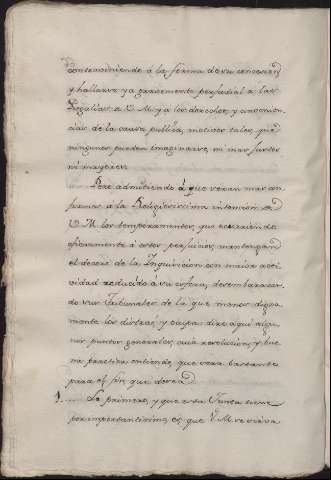 contraviniendo á la forma de su concesion
y hallarse ya gravemente perjudicial a las
Regalias de V. M. y a los derechos, y
de la causa publica, motivos tales, que
ningunos pueden imaginarse, ni mas justos
ni mayores.
Pero admitiendo á que seran mas
á la Religiosissima intencion de
V. M. los temperamentos, que ocurriendo
á estos perjuicios, mantengan
el decoro de la Inquisicion con maior acti
vidad reducido á su esfera, desembarazan
do sus Tribunales de lo que menos digna
mente los distrae, y ocupa; dire aqui algu
nos puntos generales, cuia resolucion, y bue
na practica entiendo, que sera bastante
para el fin que desea.
1.... Lo primero, y que esta Junta tiene
por importantissimo, es que V. M. se sirva